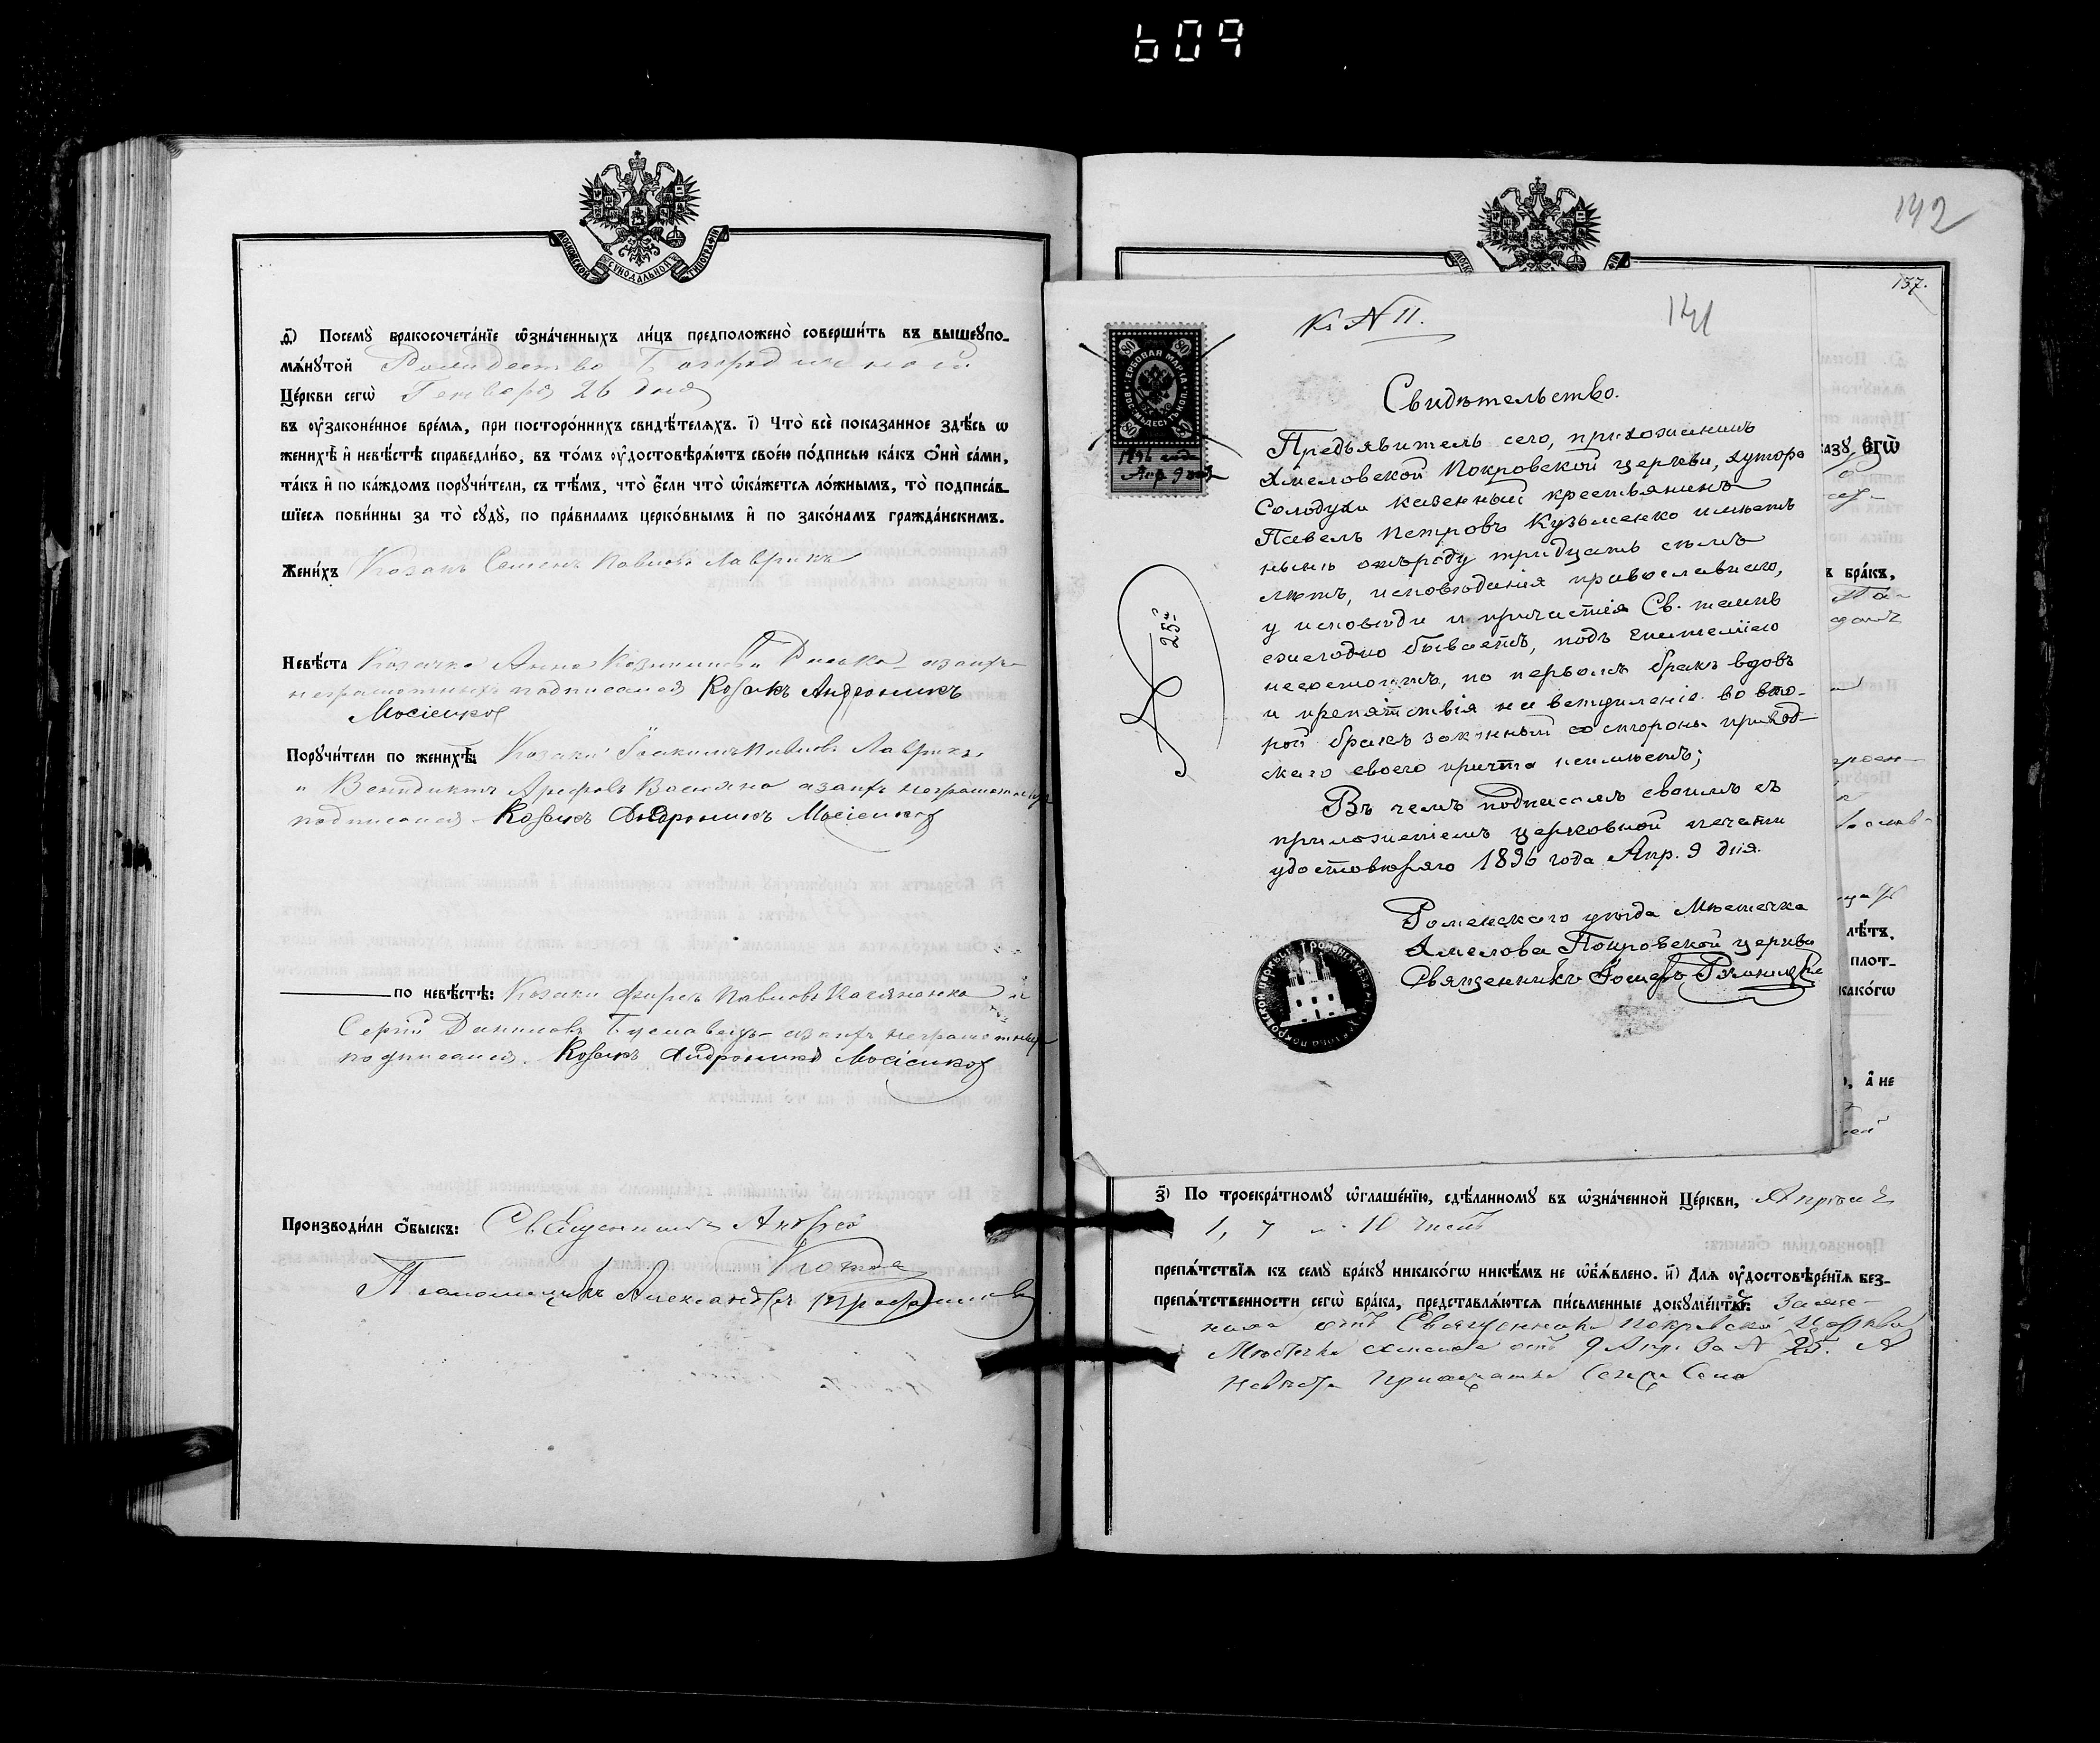 609
МОСКОВСКОЙ СУНОДАЛЬНОЙ ТИПОГРАФІИ
д҃) Посемꙋ̀ бракосочета́нїе ѡ҆зна́ченныхъ ли́цъ предположено̀ соверши́ть въ вышеꙋпо-
мѧ́нꙋтой Рождество Богородичной
Це́ркви сегѡ̀ Генваря 26 дня
въ ᲂу҆законе́нное вре́мѧ, при посторо́ннихъ свидѣ́телѧхъ. і҃) Что̀ всѐ показанное здѣ́сь ѡ
женихѣ̀ и҆ невѣ́стѣ справедли́во, въ то́мъ ᲂу҆достовѣрѧ́ютъ свое́ю по́дписью ка́къ ѻ҆нѝ са́ми,
та́къ и҆ по ка́ждомъ порꙋчи́тели, съ тѣ́мъ, что̀ є҆́сли что̀ ѡ҆ка́жетсѧ ло́жнымъ, то̀ подписа́в-
шїесѧ пови́нны за то̀ сꙋдꙋ̀, по пра́виламъ церко́внымъ и҆ по зако́намъ гражда́нскимъ.
Жени́хъ Козакъ Семенъ Павловъ Лаврикъ
Невѣ́ста Козачка Анна а за нихъ
неграмотныхъ подписался Козакъ Андроникъ
Мосіенко
Порꙋчи́тели по женихѣ̀: Козаки Іоакимъ Павловъ Лаврикъ
и Венидиктъ Арефовъ а за нихъ неграмотныхъ
подписался Козакъ Андроникъ Мосіенко
по невѣ́стѣ: Козаки Павловъ и
Сергій Даниловъ а за нихъ неграмотныхъ
подписался Козакъ Андроникъ Мосіенко
Производи́ли ѻ҆́быскъ: Священникъ Андрей
Псаломщикъ Александръ
142
137.
141
К № 11.
ГЕРБОВАЯ МАРКА ВОСЕМЬДЕСЯТЪ КОП. 80
1896 года
Апр. 9 дня
№ 25й
Свидѣтельство.
Предъявитель сего, прихожанинъ
Хмеловской Покровской церкви, хутора
Солодухи казенный крестьянинъ
Павелъ Петровъ Кузьменко имѣетъ
нынѣ отъ роду тридцать семь
лѣтъ, исповѣданія православнаго,
у исповѣди и причастія Св. таинъ
ежегодно бываетъ, подъ епитеміею
несостоитъ, по первомъ бракѣ вдовъ
и препятствія на вступленіе во вто-
рой бракъ законный со стороны приход-
скаго своего причта неимѣетъ;
Въ чемъ подписомъ своимъ съ
приложеніемъ церковной печати
удостовѣряю 1896 года Апр. 9 дня.
Роменскаго уѣзда Мѣстечка
Хмелова Покровской церкви
Священникъ
з҃) По троекра́тномꙋ ѡ҆глаше́нїю, сдѣ́ланномꙋ въ ѡ҆зна́ченной Це́ркви, Апрѣля
1, 7 и 10 чиселъ
препѧ́тствїѧ къ семꙋ̀ бра́кꙋ никако́гѡ никѣ́мъ не ѡ҆б̾ѧ́влено. и҃) Длѧ ᲂу҆достовѣре́нїѧ без-
препѧ́тственности сегѡ̀ бра́ка, представлѧ́ютсѧ пи́сьменные докꙋме́нты:
отъ Священника Покровской Церкви
Мѣстечка Хмелова отъ 9 Апр. За № 25. А
невѣста